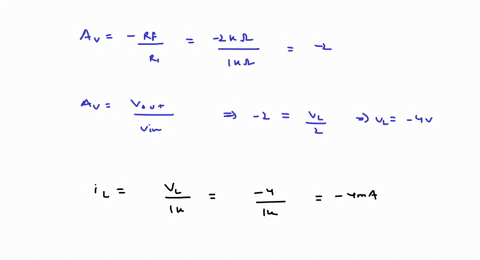 Av = - RF/R1 = -2kΩ/1kΩ = -2
Av = Vout/vin ⇒ -2 = VL/2 ⇒ VL = -4v
iL = VL/1k = -4/1k = -4mA